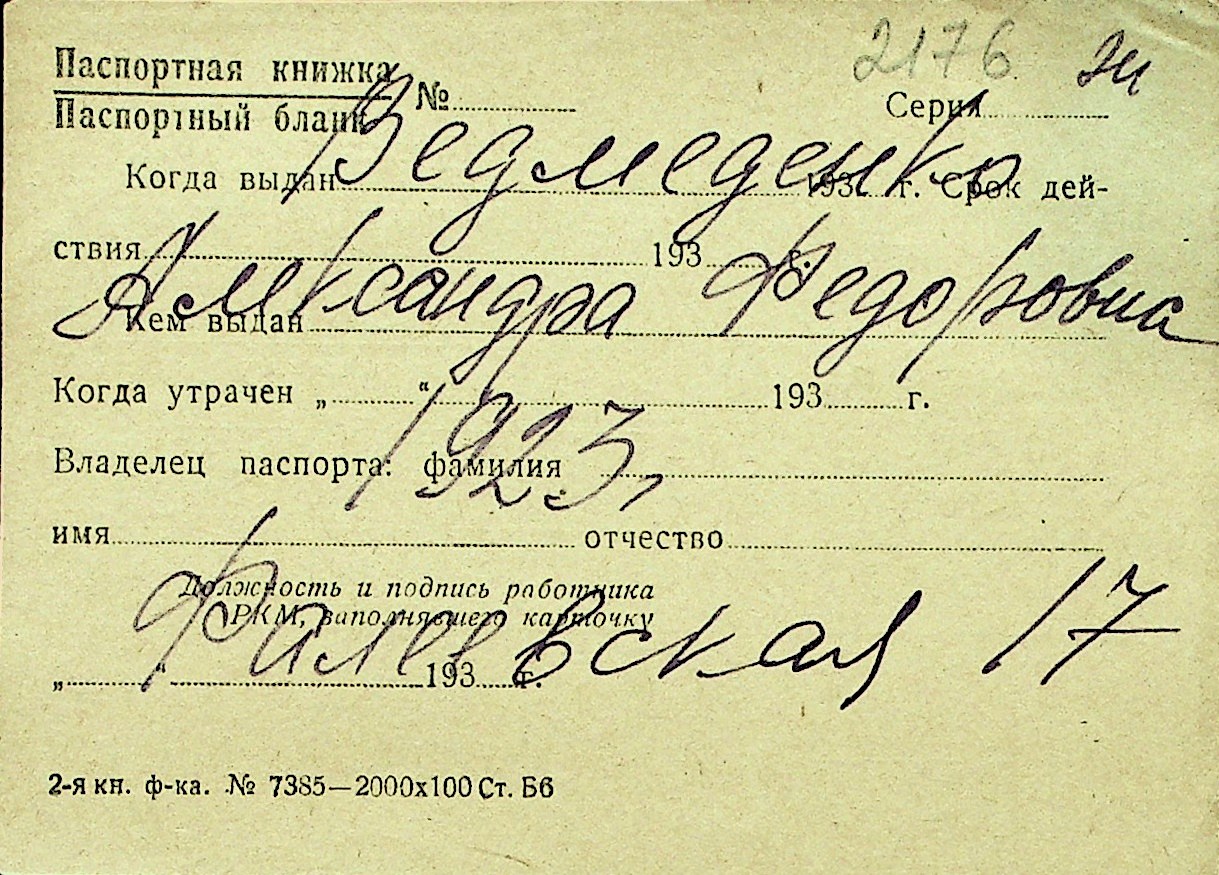 2176 зи
Паспортная книжка
Паспортный бланк № Серия
Ведмеденко
Когда выдан 193 г. Срок дей-
ствия 193 г.
Александра Федоровна
Кем выдан
Когда утрачен „ “ 193 г.
1923,
Владелец паспорта: фамилия
имя отчество
Должность и подпись работника
РКМ, заполнявшего карточку
Филевская 17
„ “ 193 г.
2-я кн. ф-ка. № 7385—2000х100 Ст. Бб